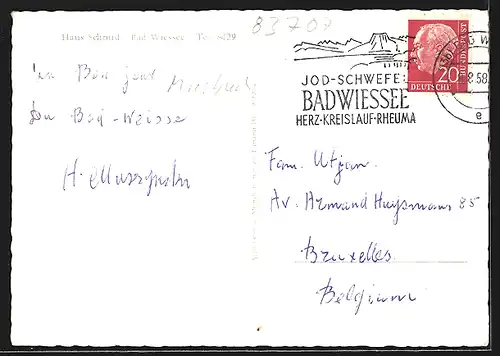 83707
Haus Schmid Bad Wiessee Tel 8429
'un Bon jour
de Bad-Weisse
JOD-SCHWEFEL
BAD WIESSEE
HERZ·KREISLAUF·RHEUMA
20
DEUTSCHE BUNDESPOST
58
e
Fam. Utjan
Av. Armand Huysmans 85
Bruxelles
Belgium